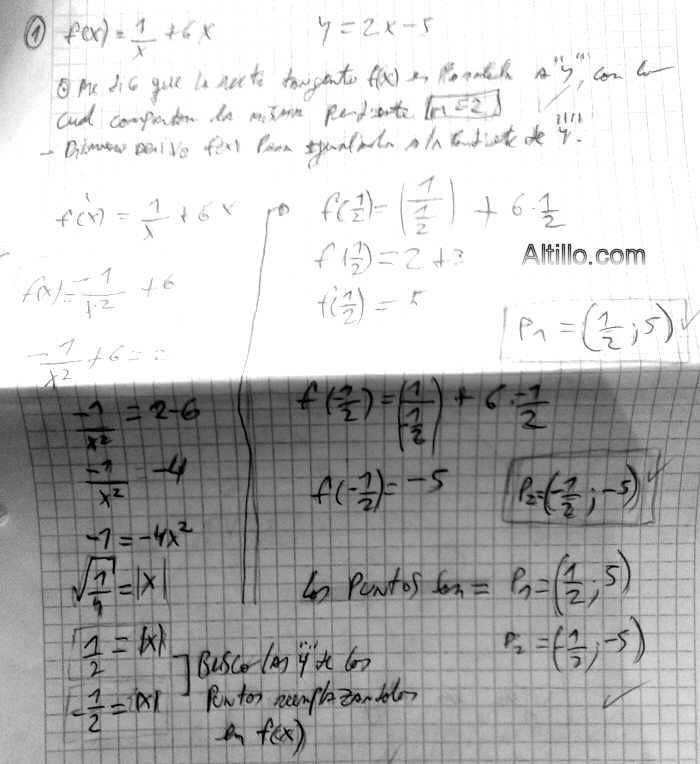 ① f(x) = 1/x + 6x    y = 2x-5
me dice que la recta tangente f(x) es Paralela a "y", con lo
cual comparten la misma Pendiente m=2
→ Primero derivo f(x) Para igualarla a la Pendiente de "y".
f(x) = 1/x + 6x
f(x) = -1/x² + 6
-1/x² + 6 = 2
-1/x² = 2-6
-1/x² -4
-1 = -4x²
√1/4 = |x|
1/2 = |x|
-1/2 = |x|
Busco las "y" de los
Puntos reemplazandolos
en f(x)
f(1/2) = (1/(1/2)) + 6·1/2
f(1/2) = 2+3
f(1/2) = 5
Altillo.com
P1 = (1/2 ; 5)
f(-1/2) = (1/(-1/2)) + 6·-1/2
f(-1/2) = -5
P2 = (-1/2 ; -5)
Los Puntos son = P1 = (1/2 ; 5)
P2 = (-1/2 ; -5)